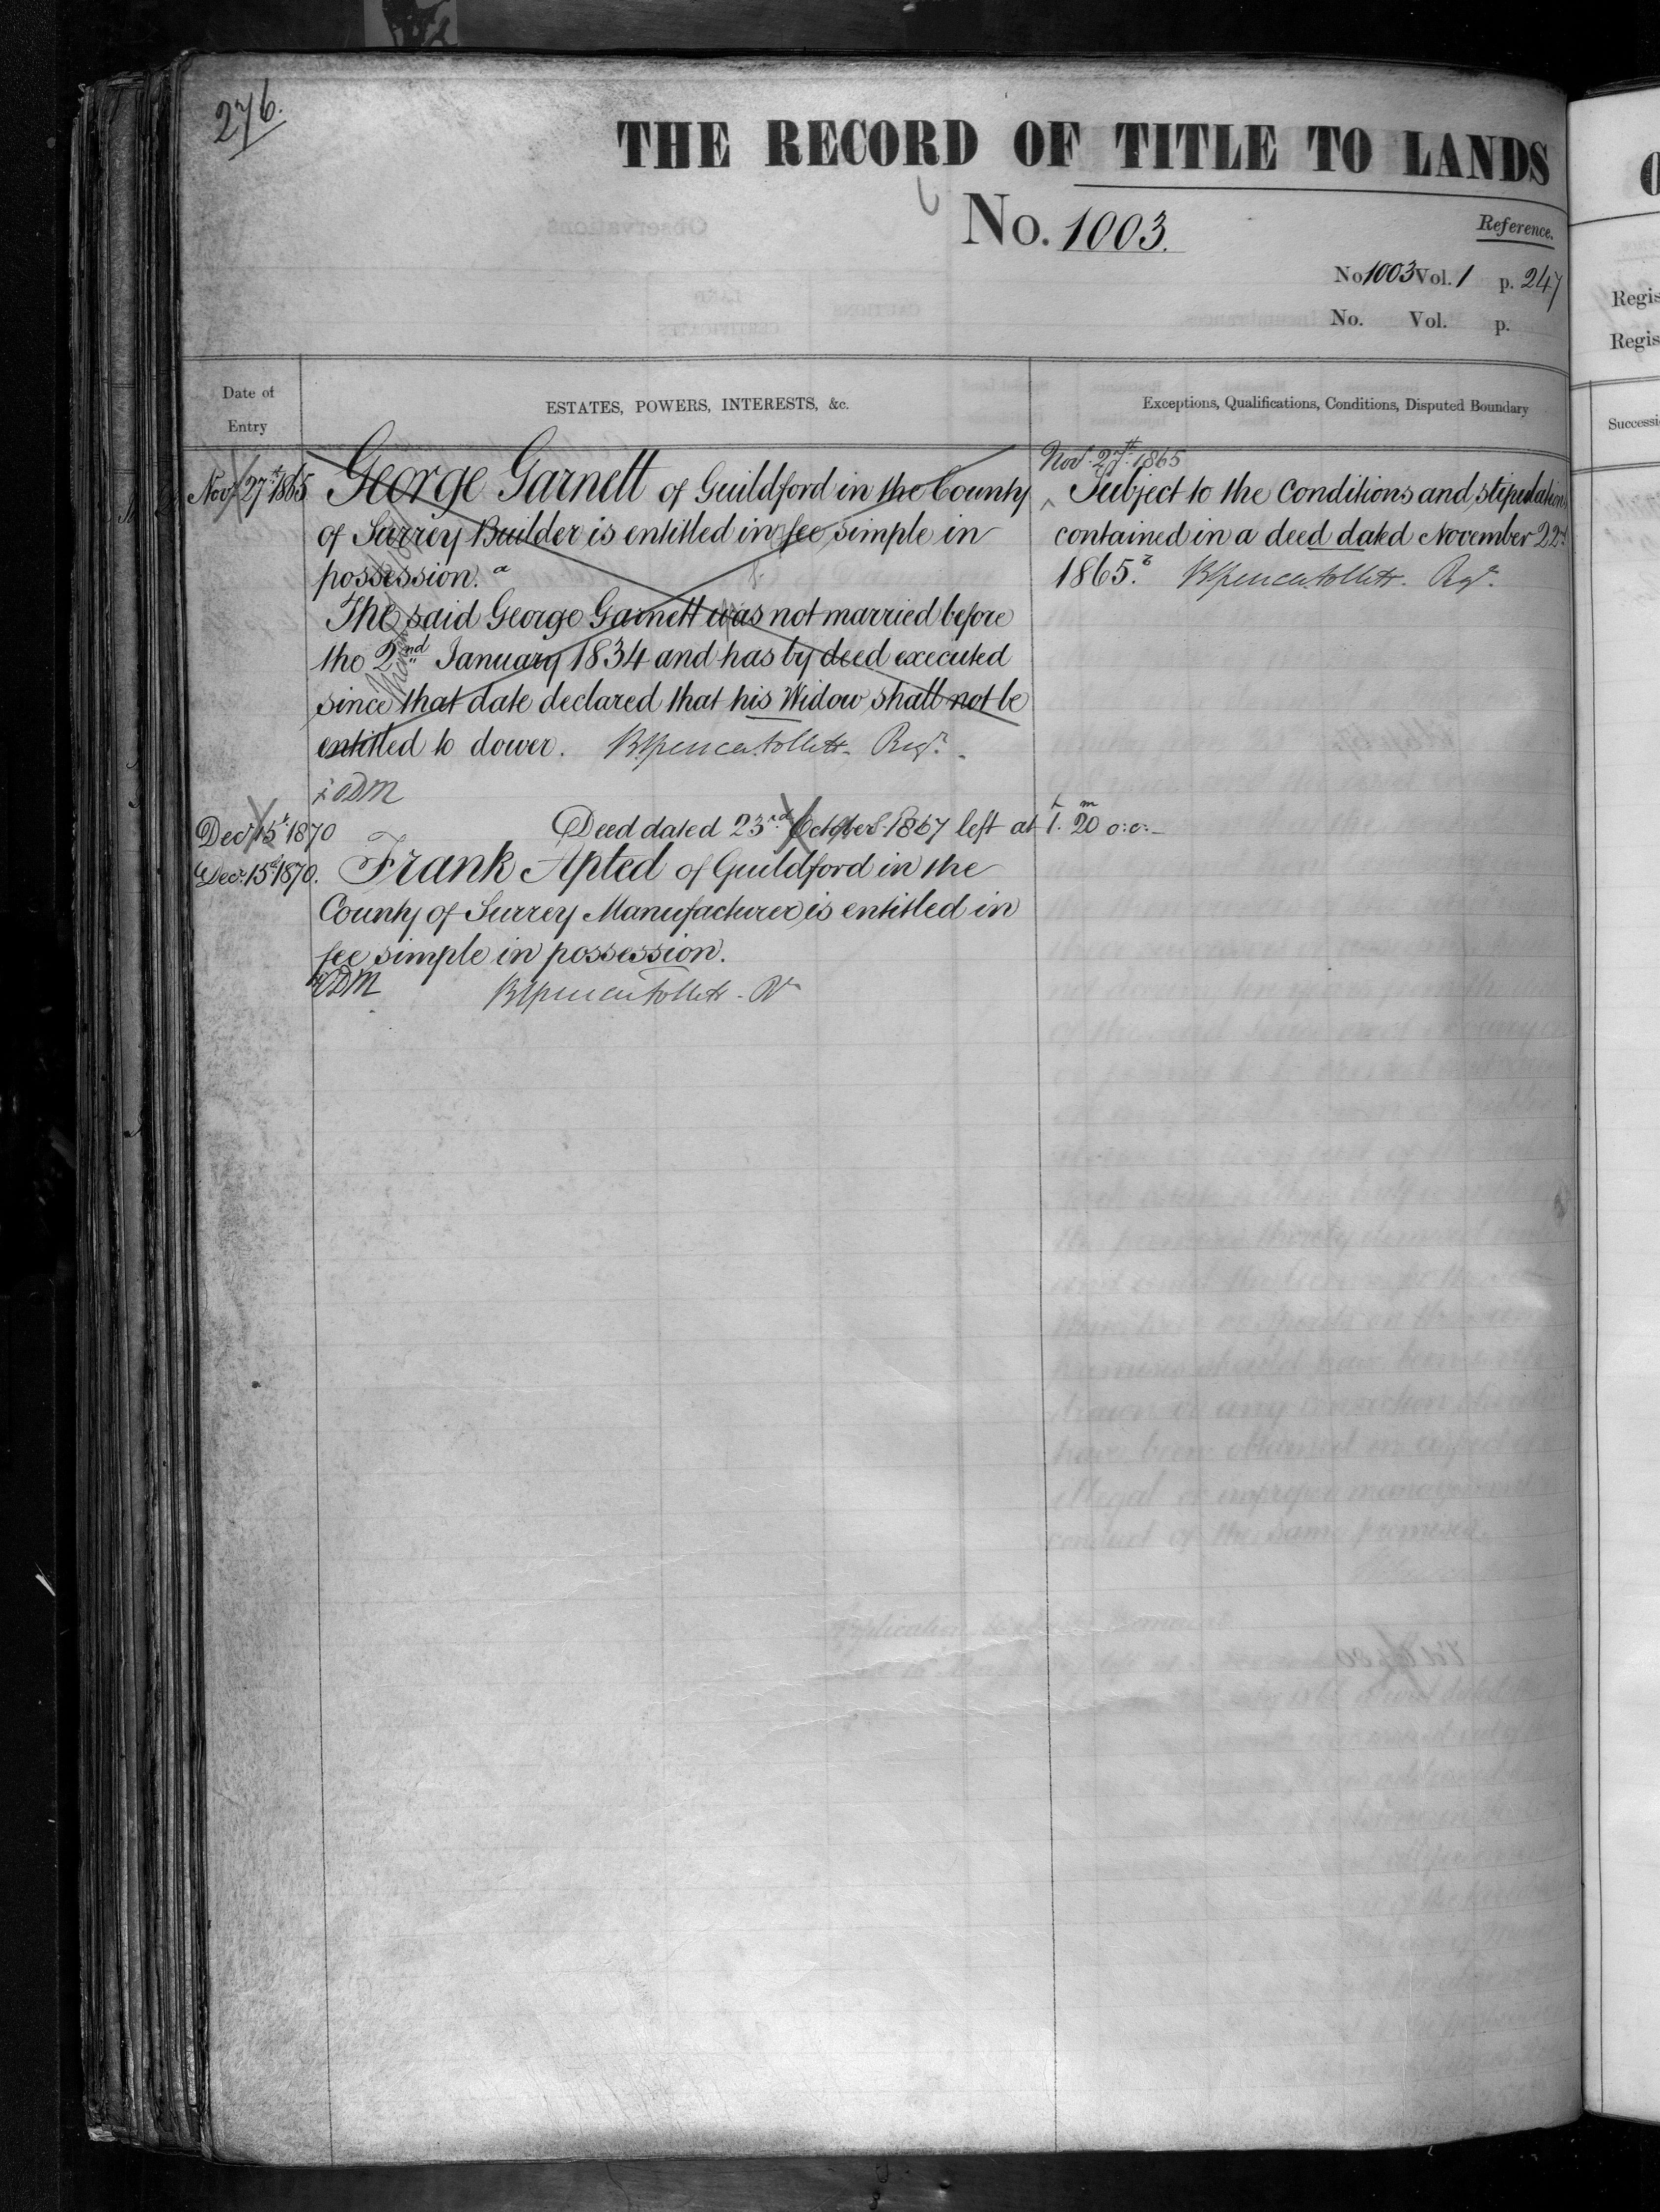 276.
THE RECORD OF TITLE TO LANDS
No. 1003.
Reference.
No 1003 Vol. 1 p. 247
No. Vol. p.
Regis
Regis
Date of Entry
ESTATES, POWERS, INTERESTS, &c.
Exceptions, Qualifications, Conditions, Disputed Boundary
Successi
Nov. 27th 1865
George Garnett of Guildford in the County
of Surrey Builder is entitled in fee simple in
possession. a
The said George Garnett was not married before
the 2nd January 1834 and has by deed executed
since that date declared that his Widow shall not be
entitled to dower. BSpencer Follett. Regr.
Nov. 27th 1865
Subject to the Conditions and stipulations
contained in a deed dated November 22d
1865. BSpencer Follett. Regr.
Decr 15th 1870 Deed dated 23rd October 1867 left at 1h. 20m o:c:
Decr 15th 1870. Frank Apted of Guildford in the
County of Surrey Manufacturer is entitled in
fee simple in possession.
BSpencer Follett. Rr